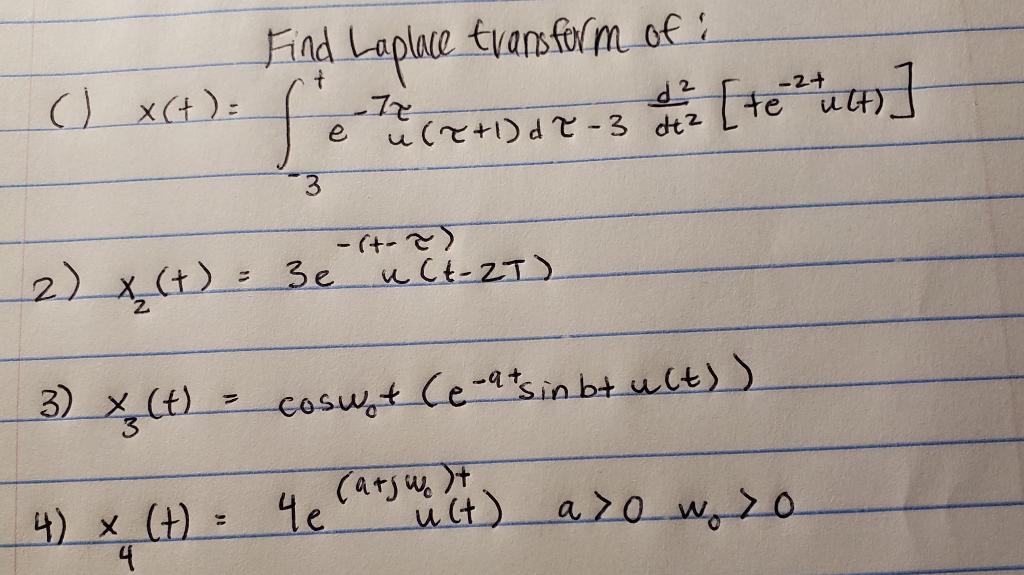 Find Laplace transform of:
1) x(t) = ∫_{-3}^{t} e^{-7τ} u(τ+1) dτ - 3 d²/dt² [te^{-2t} u(t)]
2) x₂(t) = 3e^{-(t-τ)} u(t-2T)
3) x₃(t) = cosw₀t (e^{-at} sinbt u(t))
4) x₄(t) = 4e^{(a+jw₀)t} u(t) a>0 w₀>0